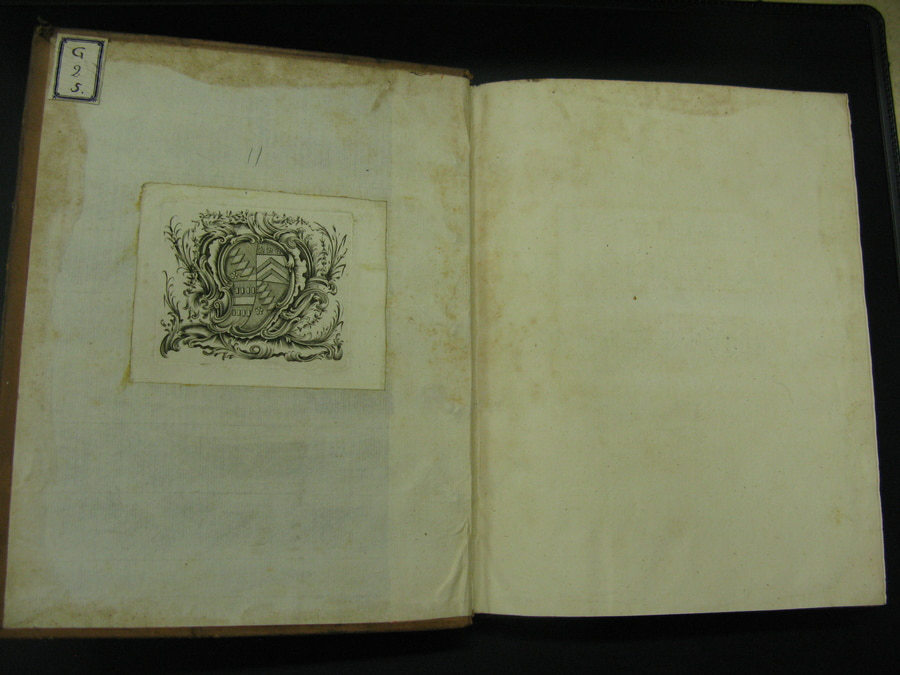 G
2
5.
11